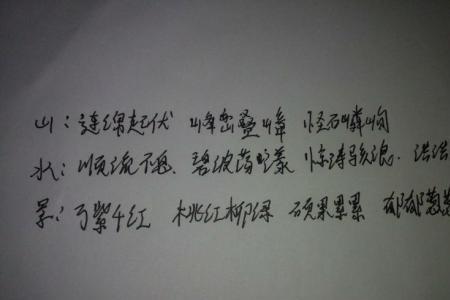 山:连绵起伏 峰峦叠嶂 怪石嶙峋
水:川流不息、碧波荡漾 惊涛骇浪、浩浩
景:万紫千红 桃红柳绿 硕果累累 郁郁葱葱